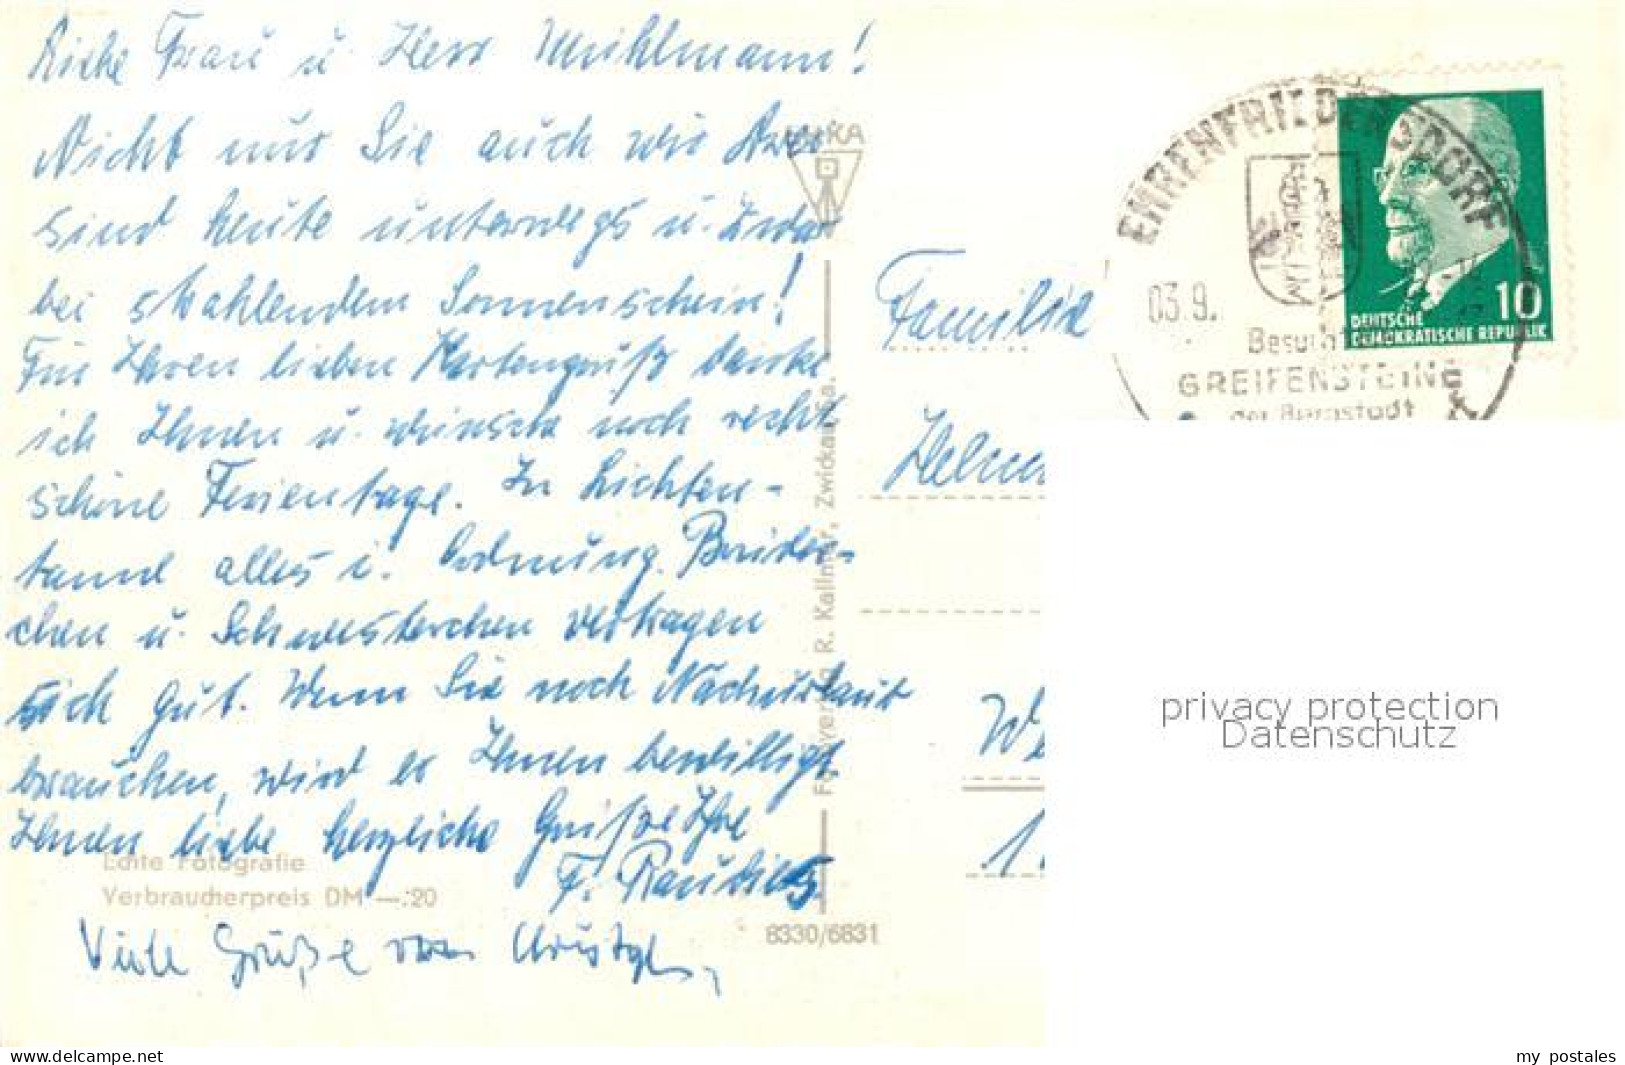 Liebe Frau u. Herr Mühlmann!
Nicht nur Sie auch wir Zwei
sind heute unterwegs u. zwar
bei strahlendem Sonnenschein!
Für Ihren lieben Kartengruß danke
ich Ihnen u. wünsche noch recht
schöne Ferientage. In Lichten-
tanne alles i. Ordnung. Brüder-
chen u. Schwesterchen vertragen
sich gut. Wenn Sie noch Nachurlaub
brauchen, wird er Ihnen bewilligt.
Ihnen liebe herzliche Grüße Ihre
F.
Viele Grüße von
Echte Fotografie
Verbraucherpreis DM —.20
8330/6831
R. Kallmer, Zwickau/Sa.
EHRENFRIEDERSDORF
03.9.
Besucht
GREIFENSTEINE
der Bergstadt
10
DEUTSCHE
DEMOKRATISCHE REPUBLIK
Familie
privacy protection
Datenschutz
www.delcampe.net
my_postales